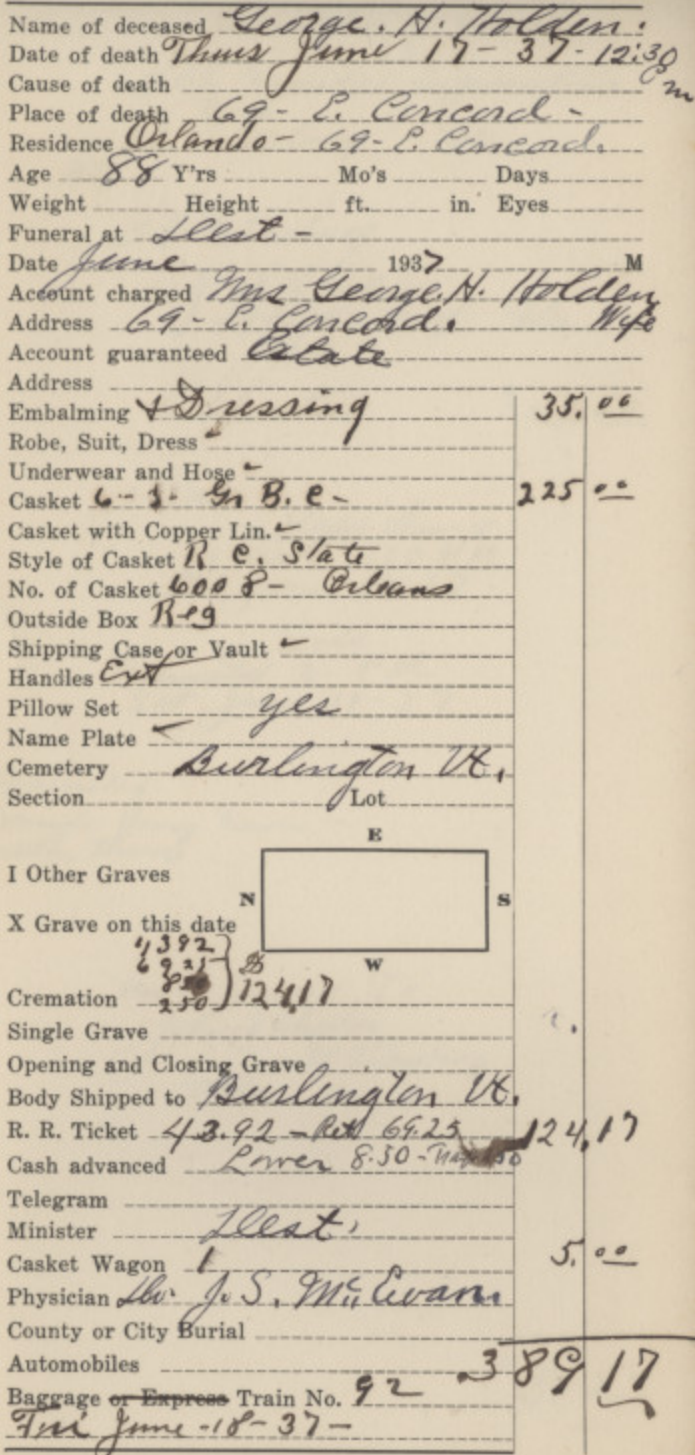 Name of deceased George. H. Holden.
Date of death Thurs June 17-37-12:30 Pm
Cause of death
Place of death 69-E. Concord-
Residence Orlando-69-E. Concord.
Age 88 Y'rs Mo's Days
Weight Height ft. in. Eyes
Funeral at Dest-
Date June 1937 M
Account charged Mrs George. H. Holden
Address 69-E. Concord. Wife
Account guaranteed Estate
Address
Embalming & Dressing 35.00
Robe, Suit, Dress
Underwear and Hose
Casket 6-3- Gr B.C- 225 00
Casket with Copper Lin.
Style of Casket R C. State
No. of Casket 6008- Orleans
Outside Box Reg
Shipping Case or Vault
Handles Ext
Pillow Set yes
Name Plate
Cemetery Burlington Vt.
Section Lot
E
I Other Graves
N S
X Grave on this date
4392
6925
W
850
Cremation 250 124.17
Single Grave
Opening and Closing Grave
Body Shipped to Burlington Vt.
R. R. Ticket 43.92- 69.25 124.17
Cash advanced Lower 8.50-
Telegram
Minister Dest.
Casket Wagon 1 5.00
Physician Dr. J. S. McEwan
County or City Burial
Automobiles 389 17
Baggage or Express Train No. 92
Fri June-18-37-